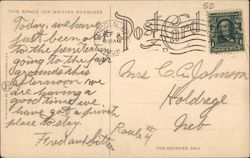 THIS SPACE FOR WRITING MESSAGES
50
Post Card
Today, we have
just been out
to the penitentiary
going to the fair
grounds this
afternoon we
are having a
good time we
have got a private
place to stay.
Fred and
Mrs C. C. Johnson
Holdrege
Neb
Route #
4
FOR ADDRESS ONLY